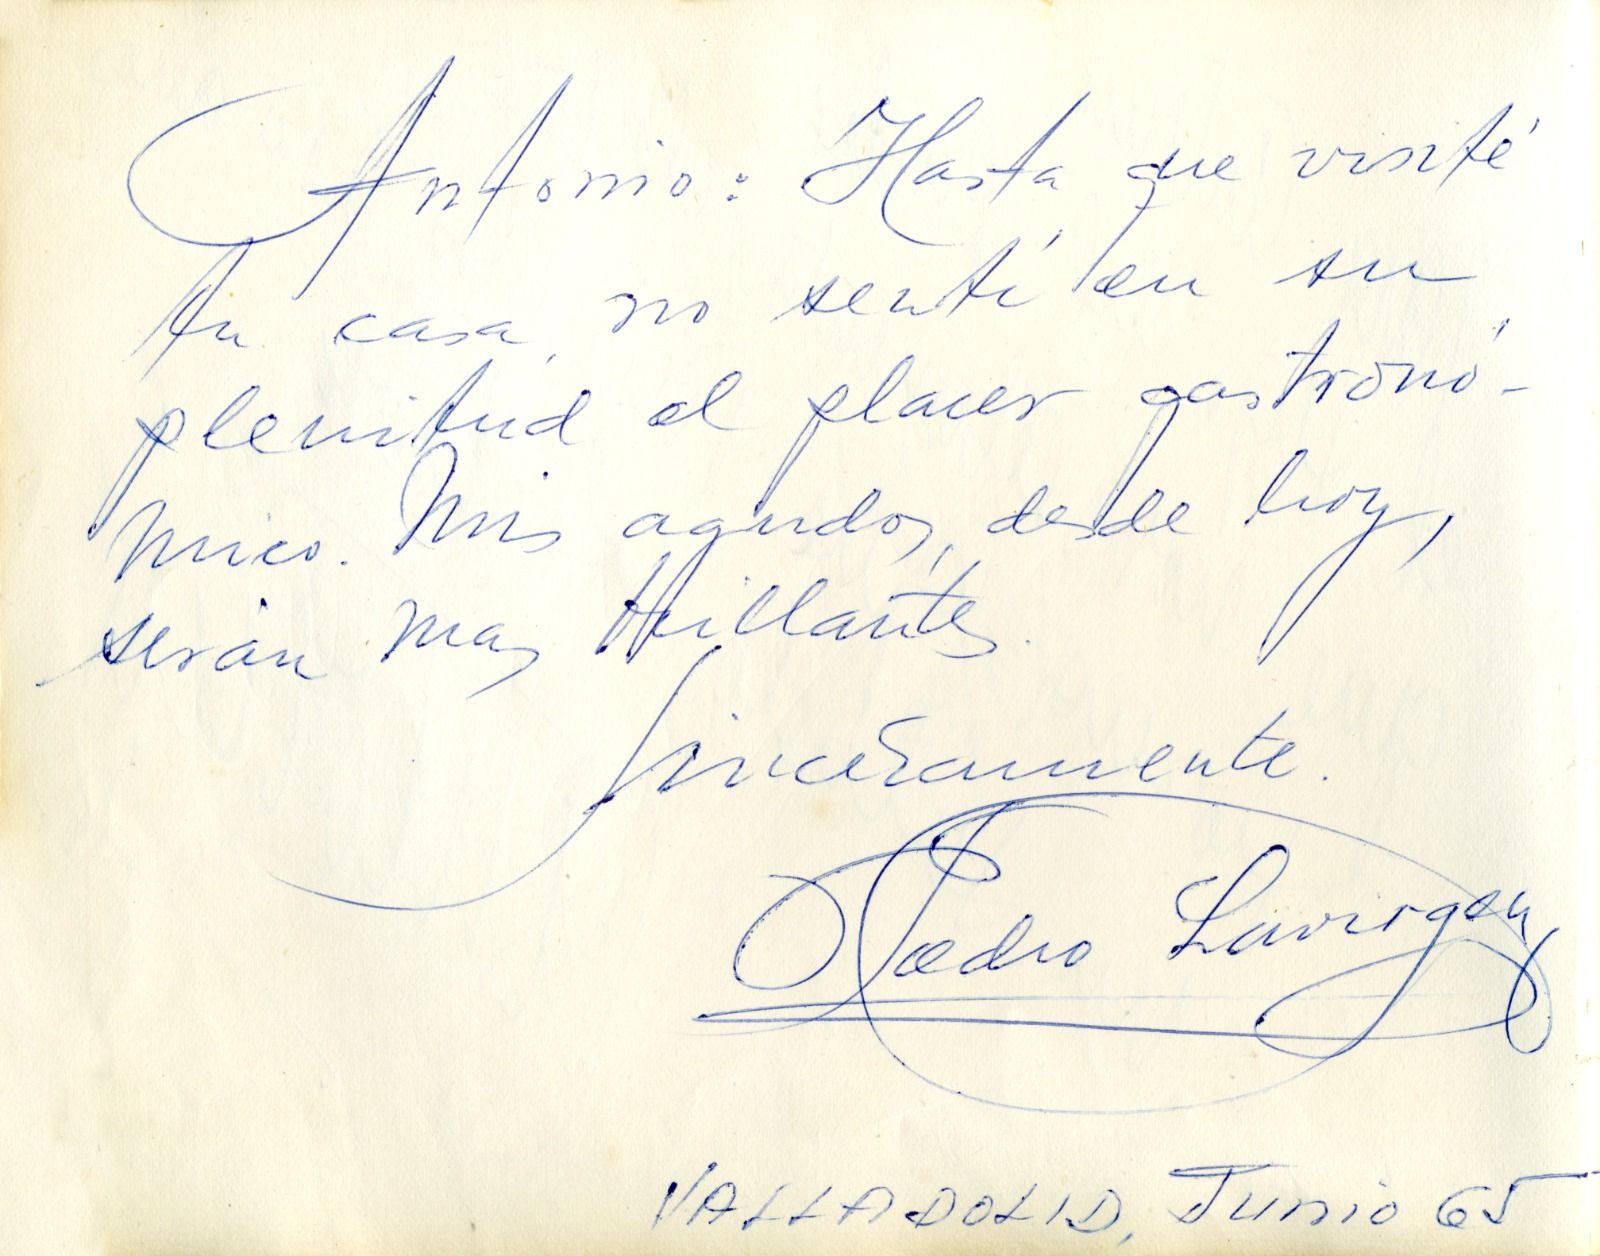 Antonio: Hasta que visité
tu casa, no sentí en su
plenitud el placer gastronó-
mico. Mis agudos, desde hoy,
serán mas brillantes.
Sinceramente.
Pedro Lavirgen
VALLADOLID, Junio 65